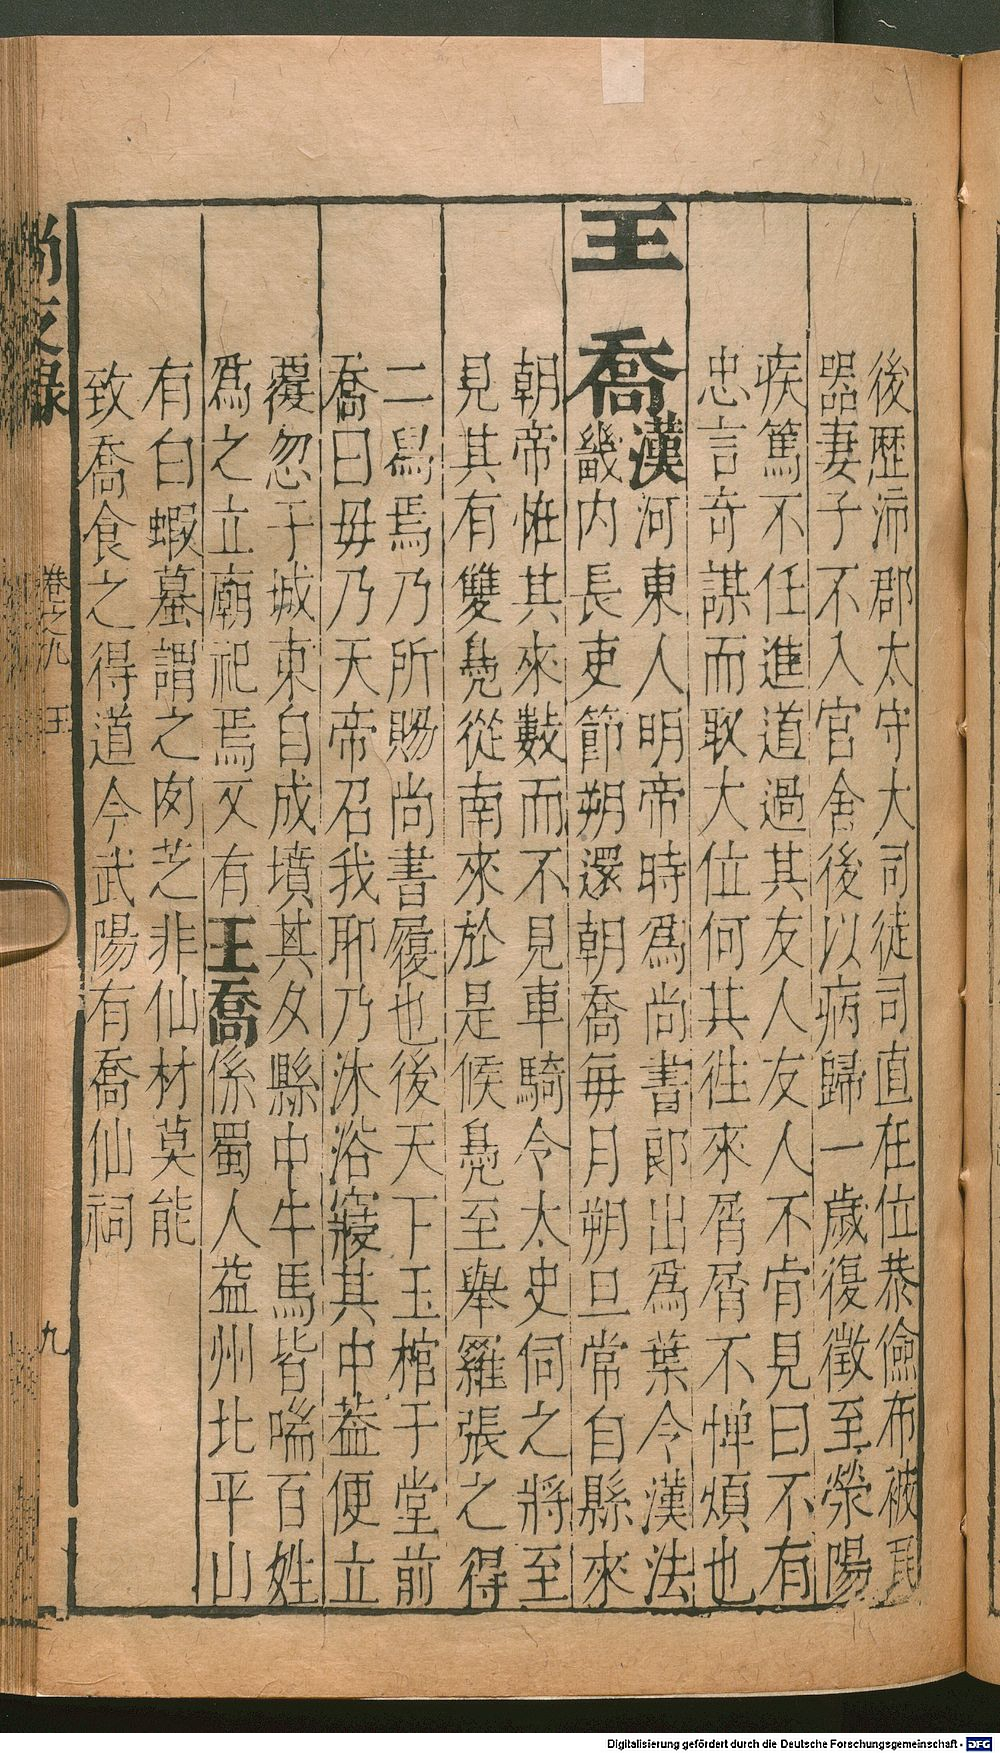 後歷沛郡太守大司徒司直在位恭儉布被瓦
器妻子不入官舍後以病歸一歲復徵至滎陽
疾篤不任進道過其友人友人不肯見曰不有
忠言奇謀而取大位何其徃來屑屑不憚煩也
王喬漢河東人明帝時爲尚書郎出爲葉令漢法
畿内長吏節朔還朝喬毎月朔旦常自縣來
朝帝恠其來數而不見車騎令太史伺之將至
見其有雙鳧從南來於是候鳧至舉羅張之得
二舄焉乃所賜尚書履也後天下玉棺于堂前
喬曰毋乃天帝召我耶乃沐浴寢其中葢便立
覆忽于城東自成墳其夕縣中牛馬皆喘百姓
爲之立廟祀焉又有王喬係蜀人益州北平山
有白蝦蟇謂之肉芝非仙材莫能
致喬食之得道今武陽有喬仙祠
尚友錄 卷之九 王 九
Digitalisierung gefördert durch die Deutsche Forschungsgemeinschaft - DFG